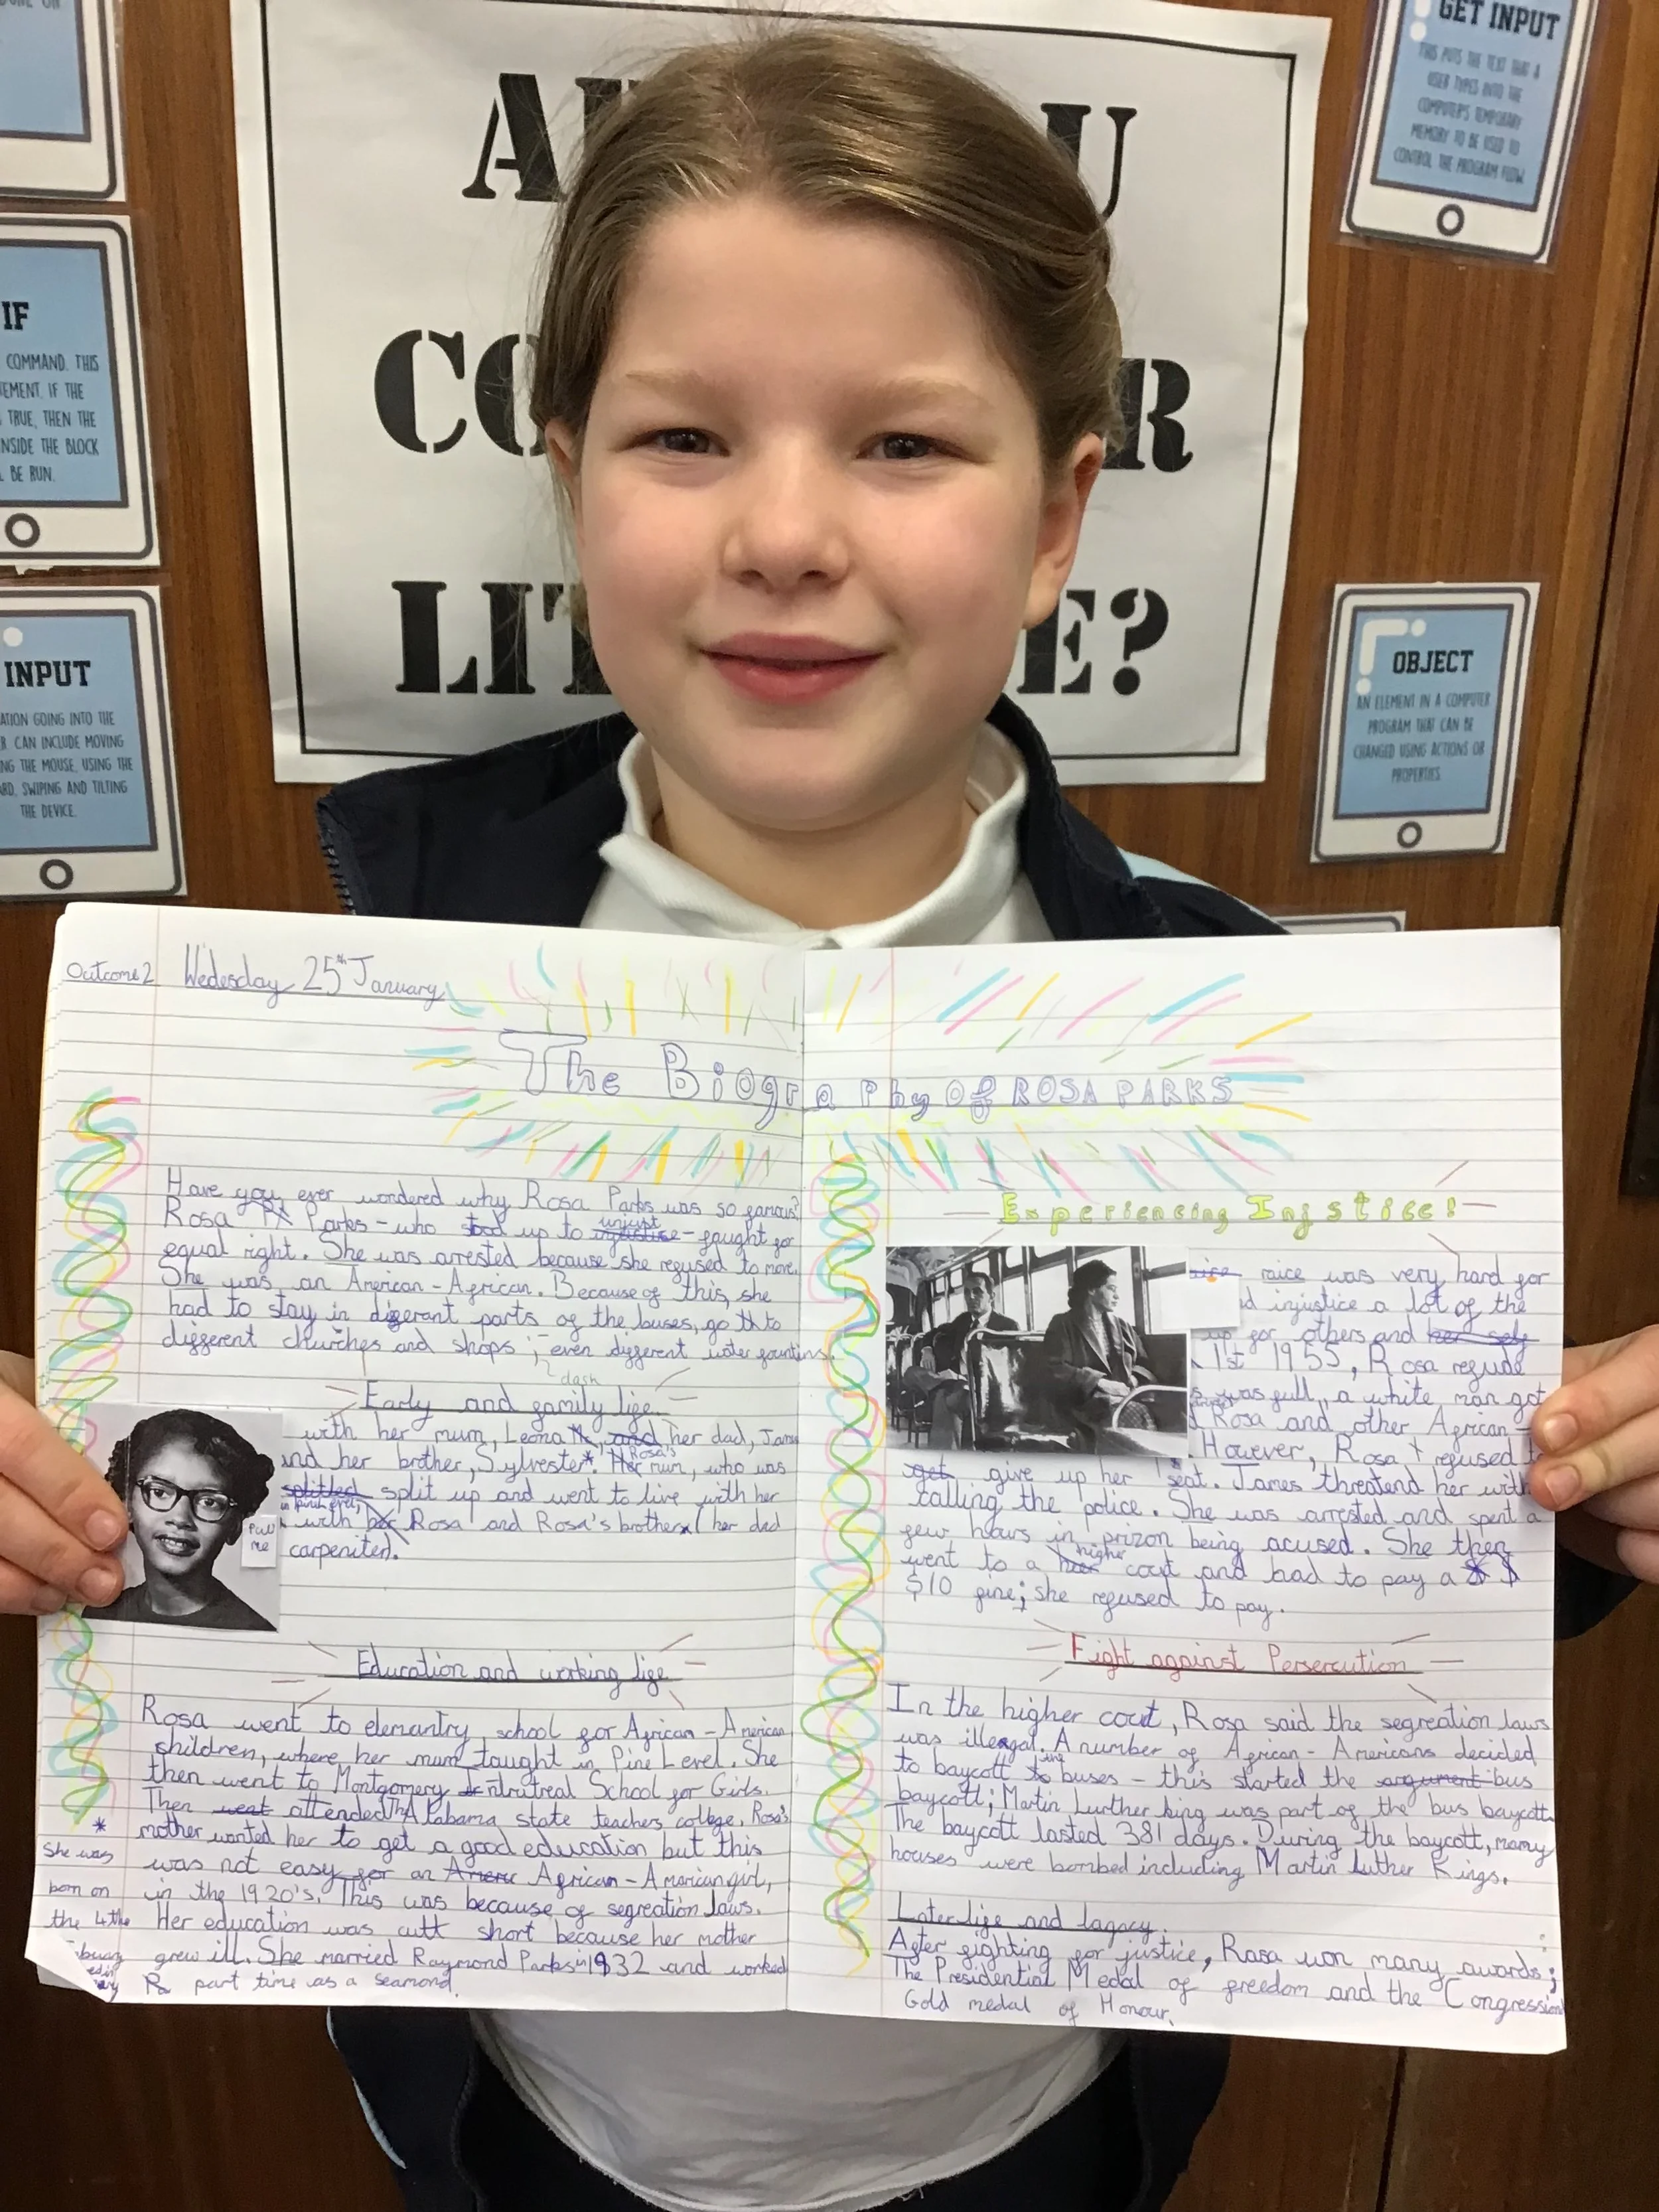 GET INPUT
THIS PUTS THE TEXT THAT A
USER TYPES INTO THE
COMPUTER'S TEMPORARY
MEMORY TO BE USED TO
CONTROL THE PROGRAM FLOW.
IF
COMMAND. THIS
IF THE
TRUE, THEN THE
INSIDE THE BLOCK
BE RUN.
INPUT
GOING INTO THE
CAN INCLUDE MOVING
THE MOUSE, USING THE
SWIPING AND TILTING
THE DEVICE.
OBJECT
AN ELEMENT IN A COMPUTER
PROGRAM THAT CAN BE
CHANGED USING ACTIONS OR
PROPERTIES.
Outcome 2 Wedesday 25th January
The Biography Of ROSA PARKS
Have you ever wondered why Rosa Parks was so famous?
Rosa Parks - who stood up to unjust - fought for
equal right. She was arrested because she refused to move.
She was an American - African. Because of this, she
had to stay in diferent parts of the buses, go to
different churches and shops ; even different water fountins.
dash
Early and family life
with her mum, Leona, her dad, James
and her brother, Sylvester*. Rosa's mum, who was
splitted split up and went to live with her
with Rosa and Rosa's brother (her dad
carpeniter).
Pull
me
Education and working life
Rosa went to elemantry school for African - American
children, where her mum taught in Pine Level. She
then went to Montgomery School for Girls.
Then went attended The Alabama state teachers college, Rosa's
mother wanted her to get a good education but this
was not easy for an African - American girl,
in the 1920's. This was because of segreation laws.
Her education was cutt short because her mother
grew ill. She married Raymond Parks in 1932 and worked
part time as a seamond.
*
She was
born on
the 4the
Experiencing Injstice!
raice was very hard for
injustice a lot of the
up for others and her self
1st 1955, Rosa refude
was full, a white man got
Rosa and other African -
However, Rosa refused t
get give up her seat. James threatend her with
calling the police. She was arrested and spent a
few hours in prizon being acused. She then
went to a higher cout and had to pay a $
$10 fine; she refused to pay.
Fight against Persercution
In the higher cout, Rosa said the segreation laws
was illeagal. A number of African - Americans decided
to baycott the buses - this started the argument bus
baycott; Martin Lurther king was part of the bus baycott.
The baycott lasted 381 days. During the baycott, many
houses were bombed including Martin Luther Kings.
Later life and lagacy.
After fighting for justice, Rosa won many awards;
The Presidential Medal of freedom and the Congression
Gold medal of Honour.